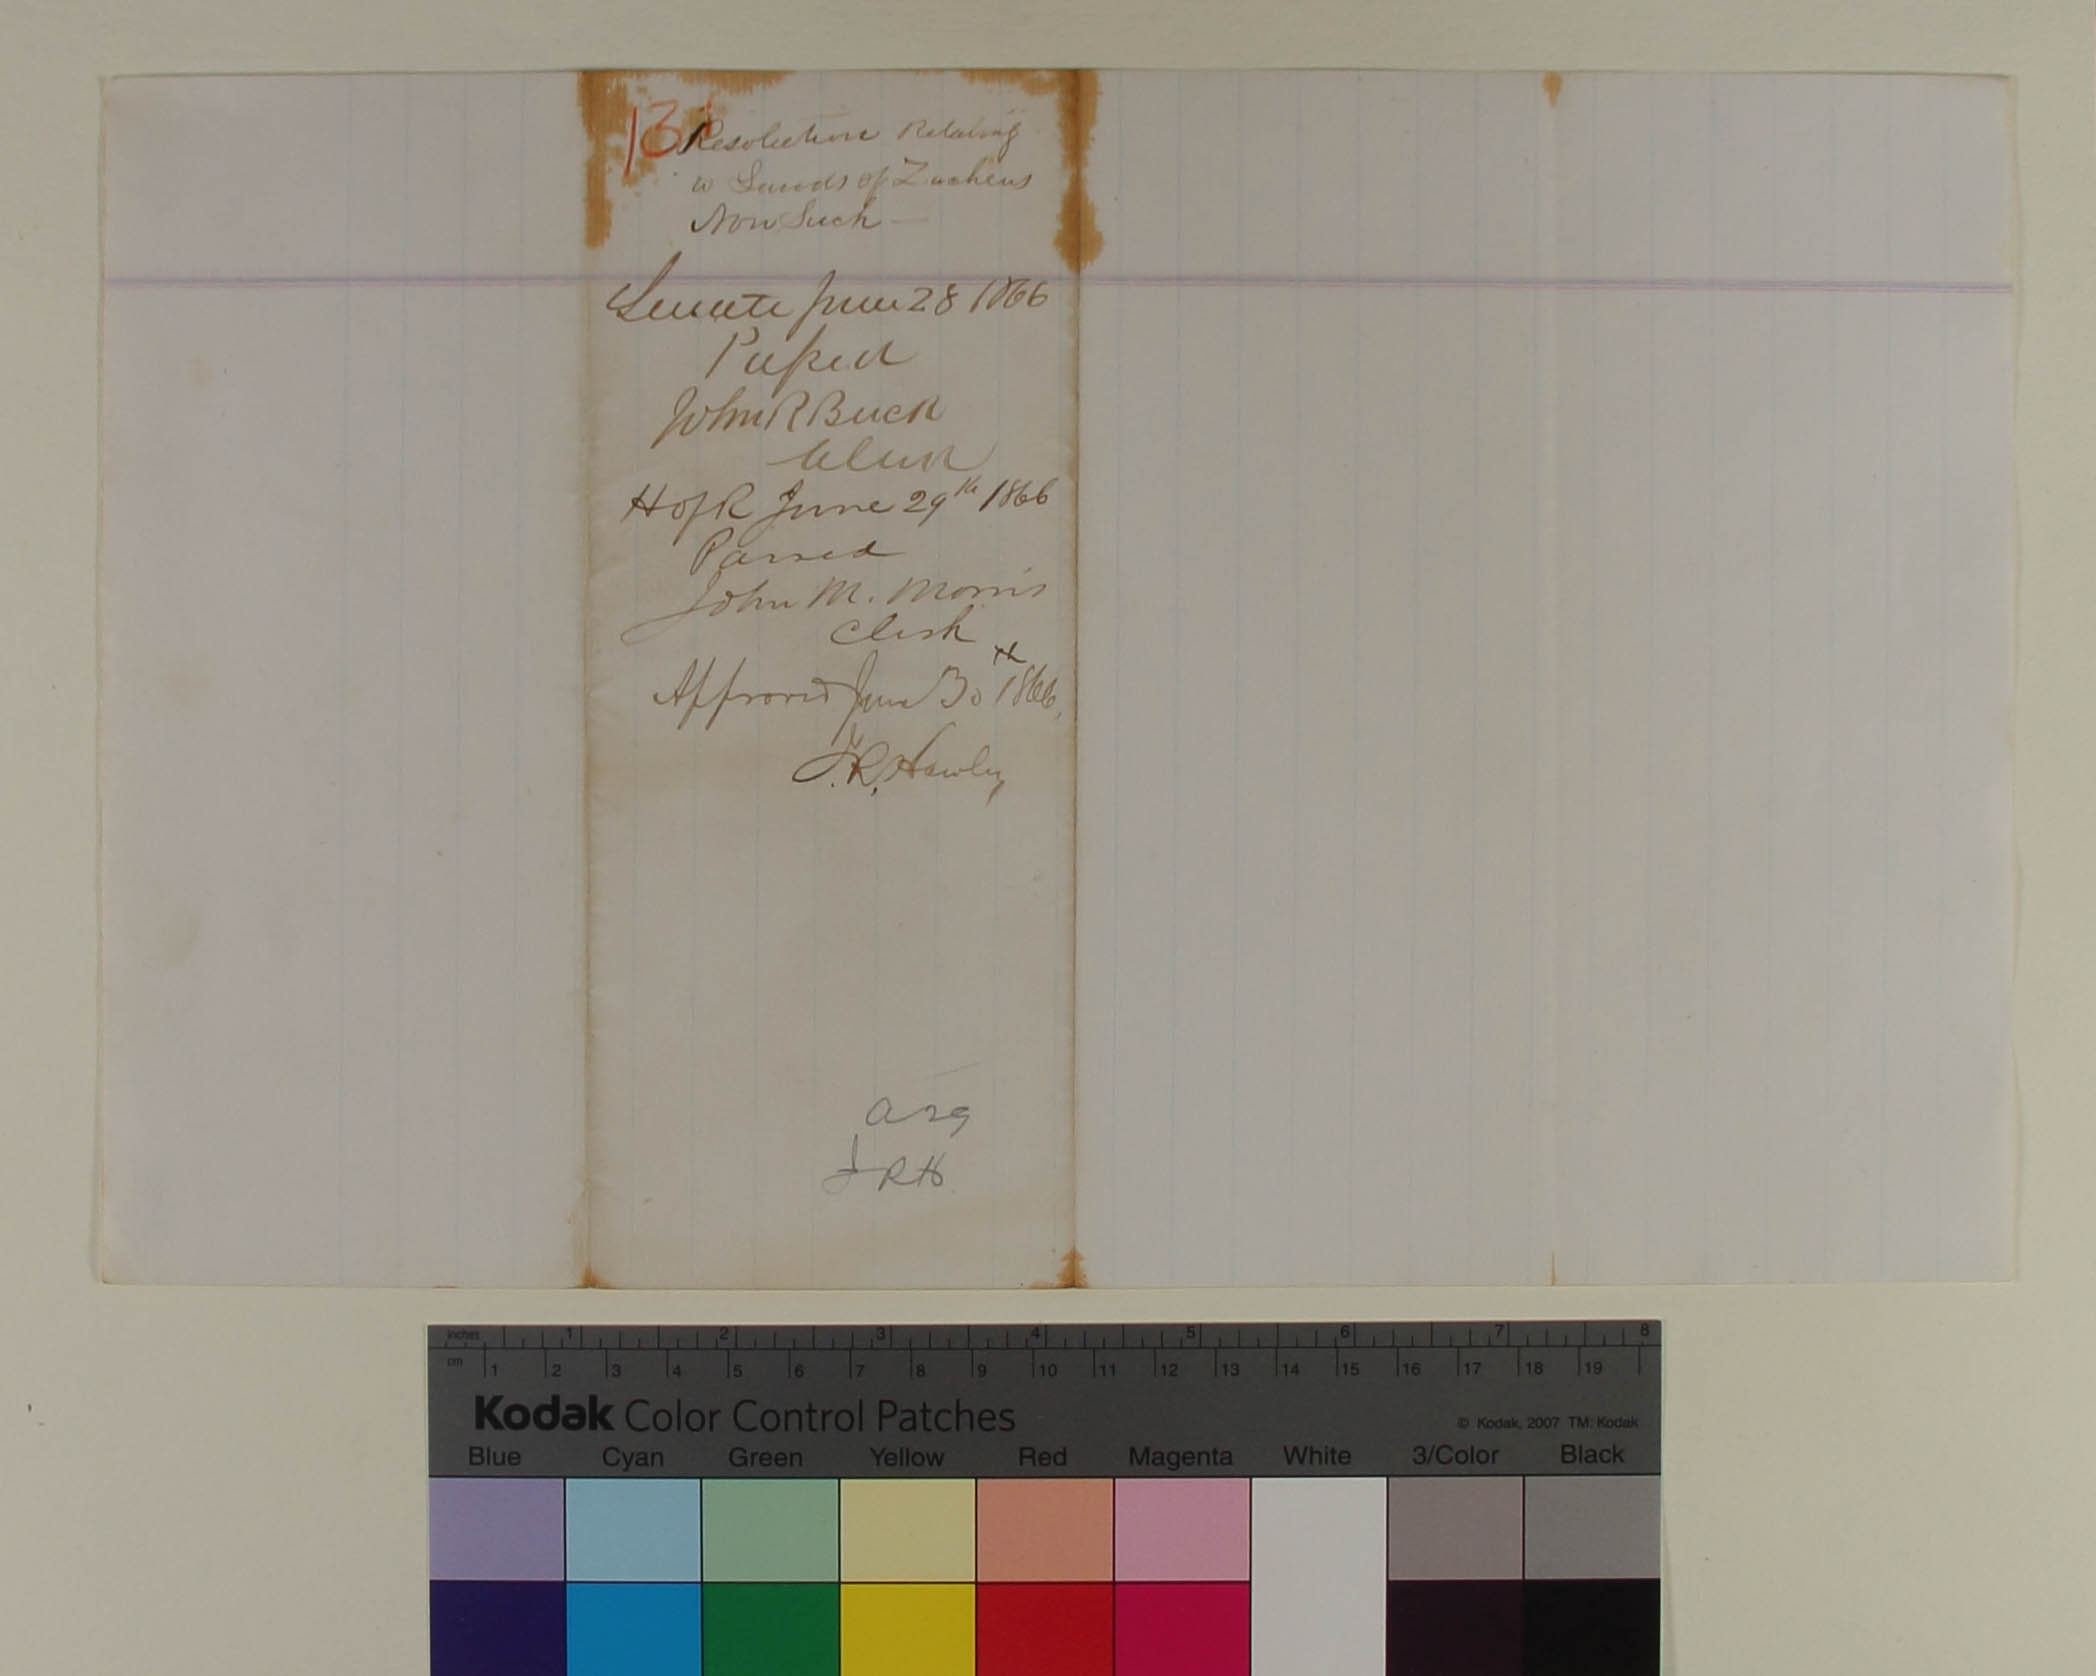 13
Resolution Relating
to Lands of Zacheus
Non Such —
Senate June 28 1866
Passed
John R Buck
Clerk
H of R June 29th 1866
Passed
John M. Morris
Clerk
Approved June 30th 1866,
J. R. Hawley
JRH
inches 1 2 3 4 5 6 7 8
cm 1 2 3 4 5 6 7 8 9 10 11 12 13 14 15 16 17 18 19
Kodak Color Control Patches
© Kodak, 2007 TM: Kodak
Blue Cyan Green Yellow Red Magenta White 3/Color Black